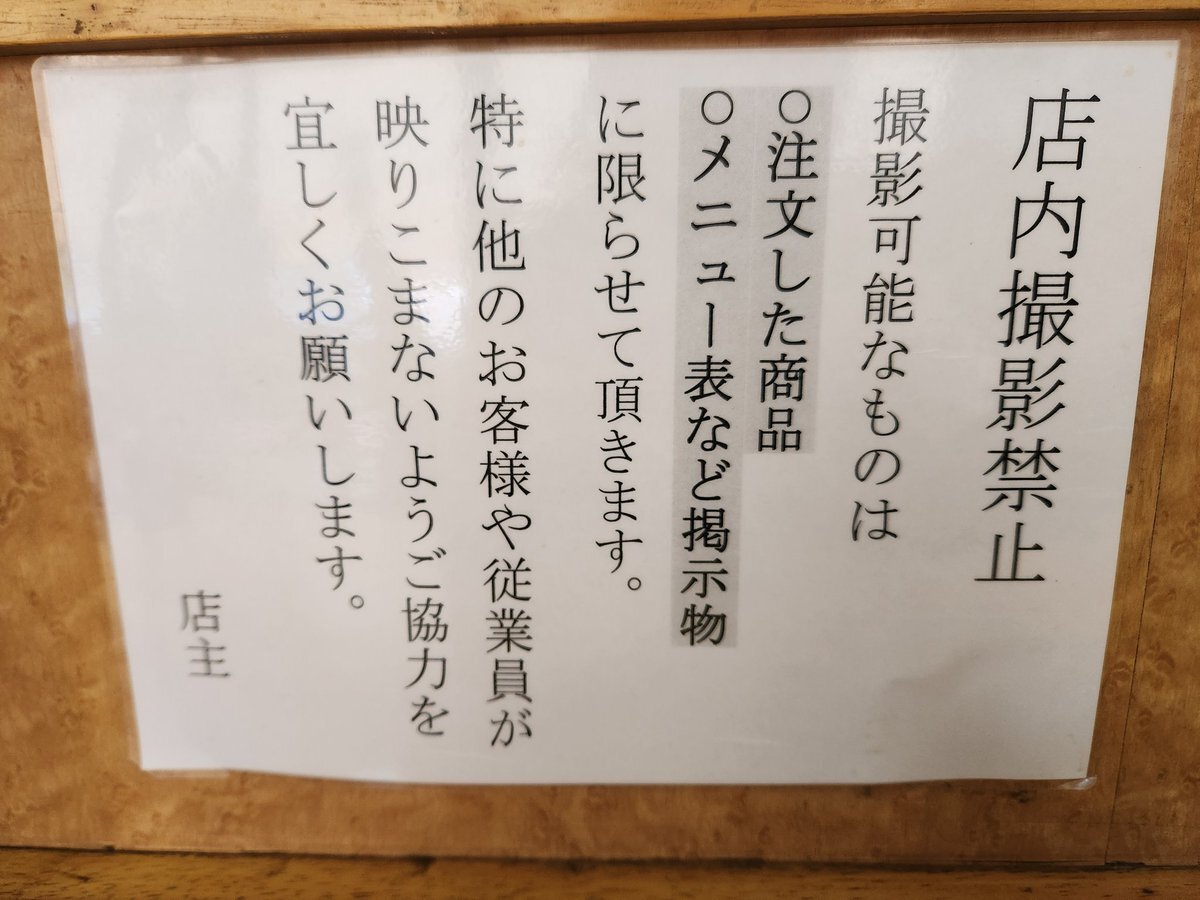 店内撮影禁止
撮影可能なものは
○注文した商品
○メニュー表など掲示物
に限らせて頂きます。
特に他のお客様や従業員が
映りこまないようご協力を
宜しくお願いします。
店主